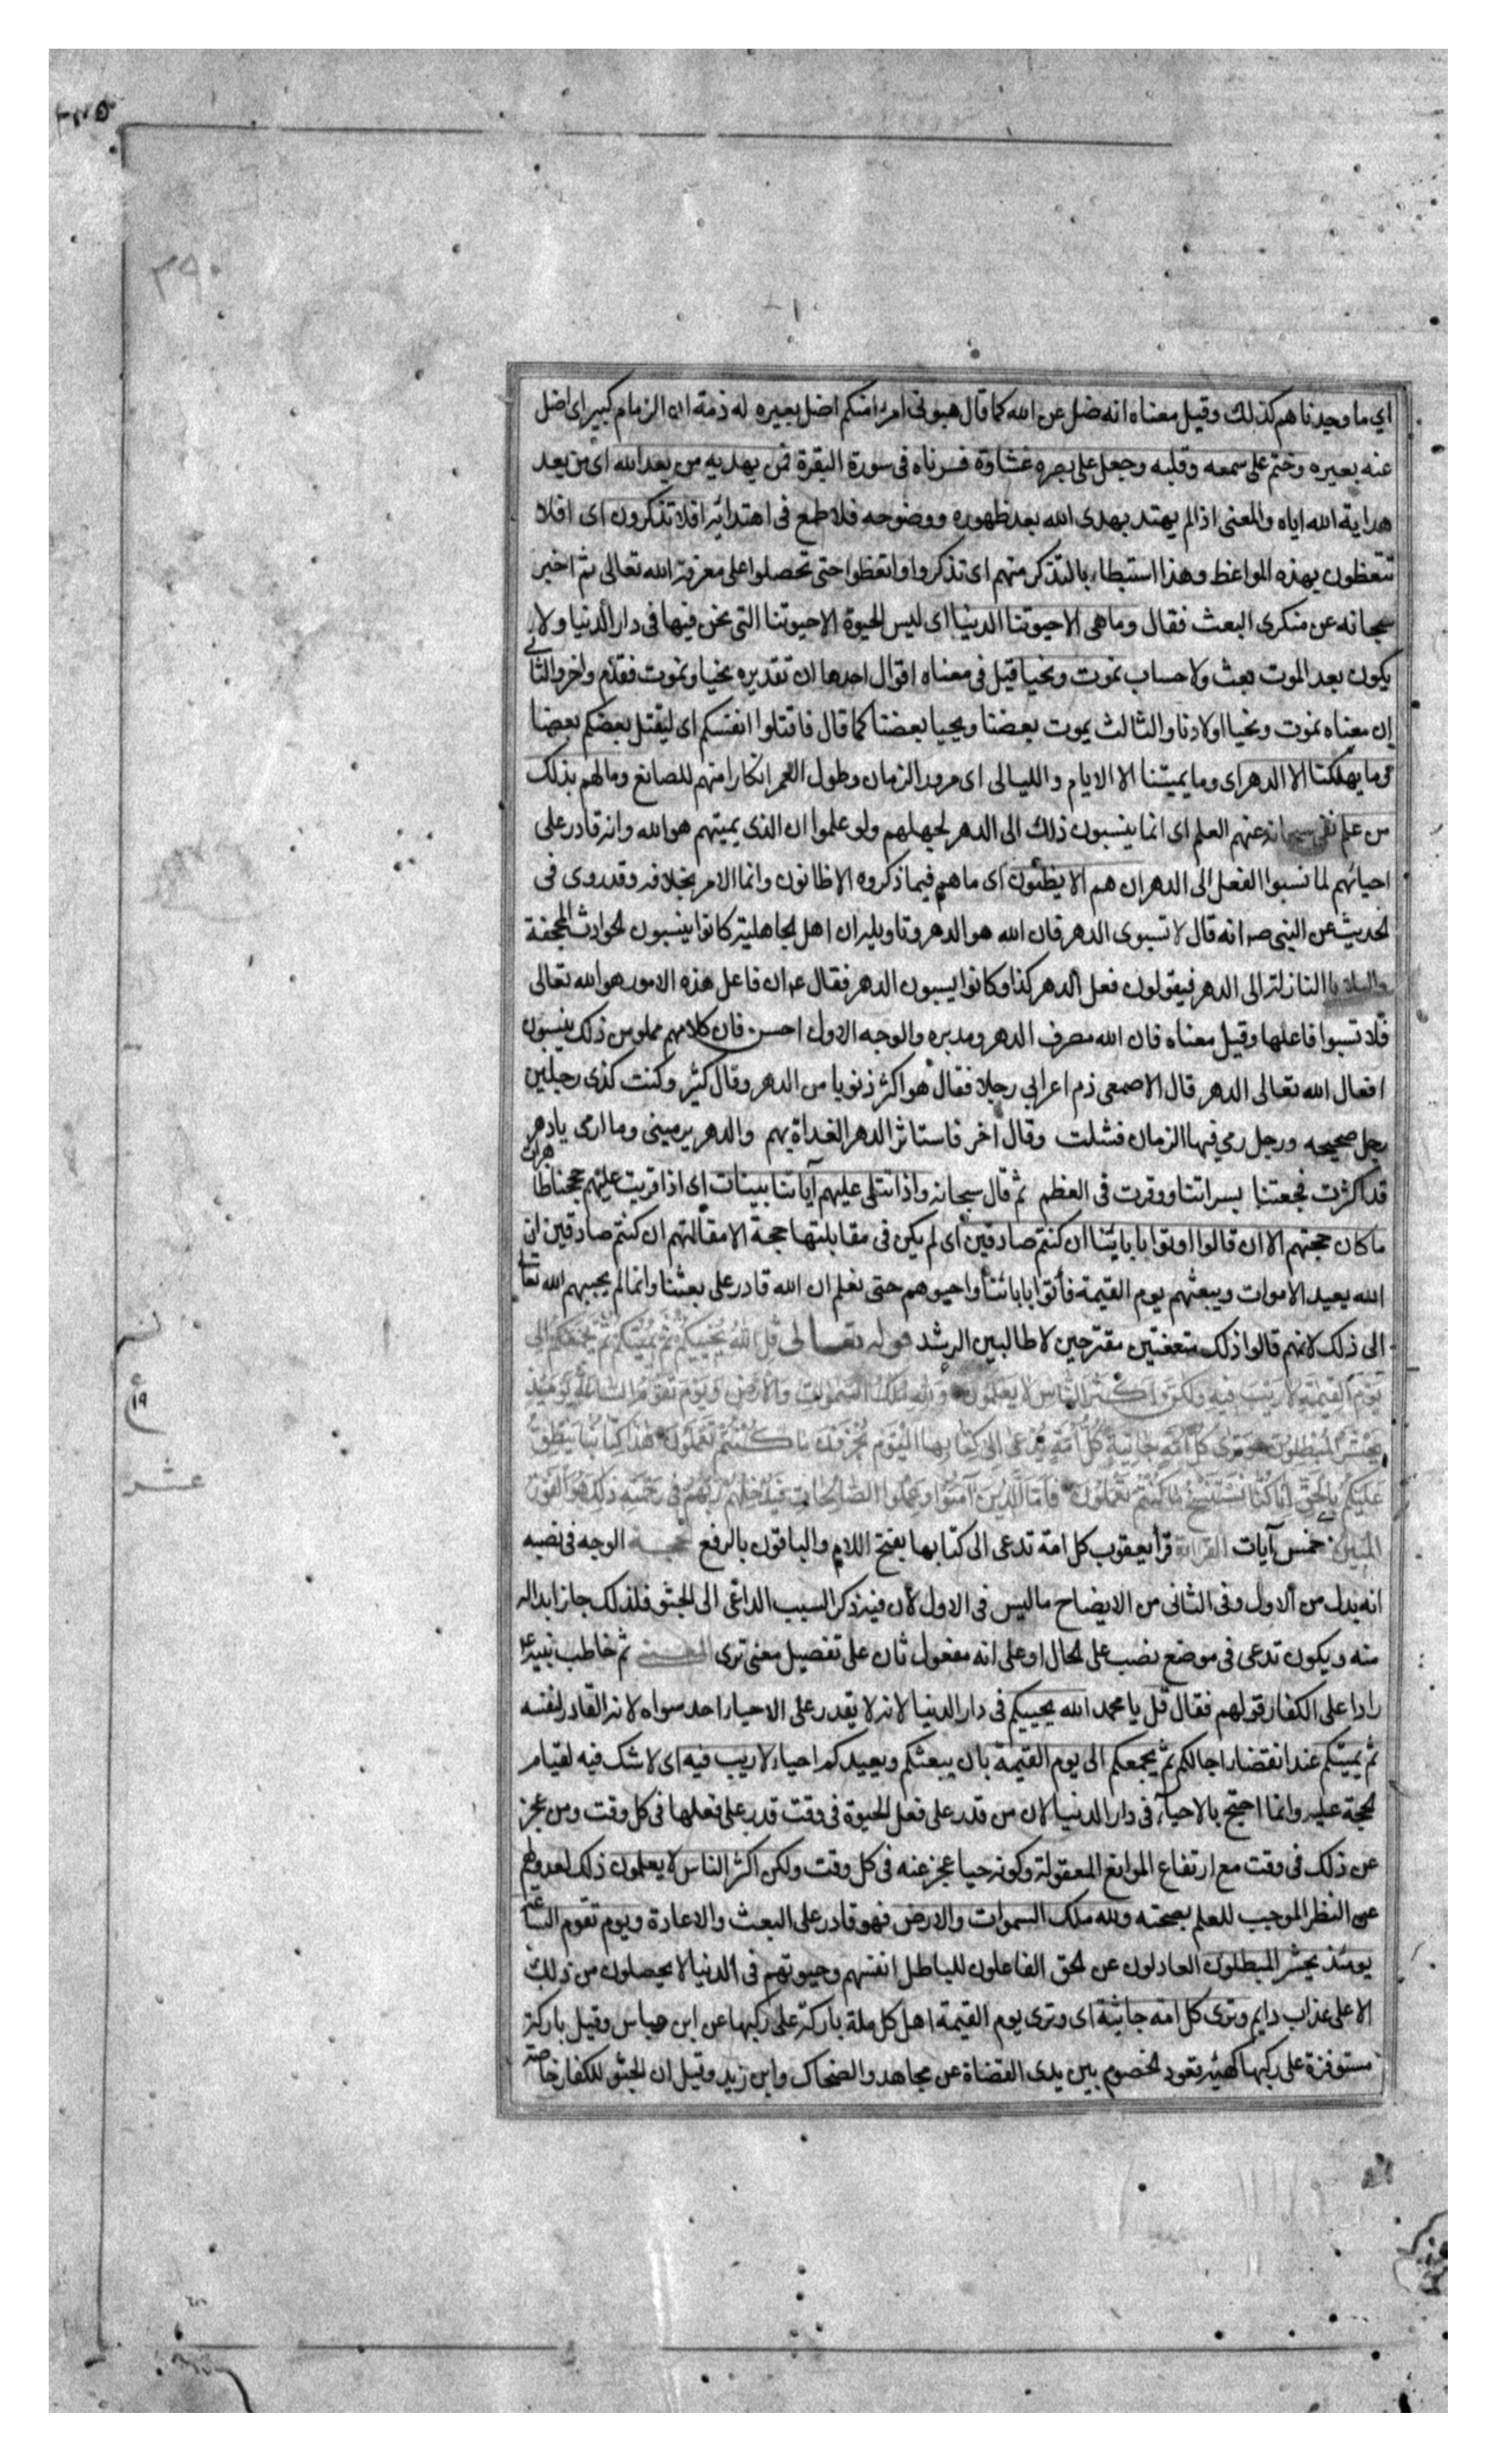 ٣٩٠
اي ما وجدناهم كذلك وقيل معناه انه ضل عن الله كما قال هبوني امرءا منكم اضل بعيره له ذمة ان الزمام كبير اى اضل
عنه بعيره وختم على سمعه وقلبه وجعل على بصره غشاوة فسرناه فى سورة البقرة فمن يهديه من بعد الله اى من بعد
هداية الله اياه والمعنى اذا لم يهتد بهدى الله بعد ظهوره ووضوحه فلا طمع فى اهتدائه افلا تذكرون اى افلا
تتعظون بهذه المواعظ وهذا استبطاء بالتذكر منهم اى تذكروا واتعظوا حتى تحصلوا على معرفة الله تعالى ثم اخبر
سبحانه عن منكرى البعث فقال وما هى الا حيوتنا الدنيا اى ليس الحيوة الا حيوتنا التى نحن فيها فى دار الدنيا ولا
يكون بعد الموت بعث ولا حساب نموت ونحيا قيل فى معناه اقوال احدها ان تقديره نحيا ونموت فقدم واخر والثانى
ان معناه نموت ونحيا اولادنا والثالث يموت بعضنا ويحيا بعضنا كما قال فاقتلوا انفسكم اى ليقتل بعضكم بعضا
وما يهلكنا الا الدهر اى وما يميتنا الا الايام والليالى اى مرور الزمان وطول العمر انكارا منهم للصانع وما لهم بذلك
من علم نفى سبحانه عنهم العلم اى انما ينسبون ذلك الى الدهر لجهلهم ولو علموا ان الذى يميتهم هو الله وانه قادر على
احيائهم لما نسبوا الفعل الى الدهر ان هم الا يظنون اى ما هم فيما ذكروه الا ظانون وانما الامر بخلافه وقد روى فى
الحديث عن النبى صه انه قال لا تسبوى الدهر فان الله هو الدهر وتاويله ان اهل الجاهلية كانوا ينسبون الحوادث المجحفة
والبلايا النازلة الى الدهر فيقولون فعل الدهر كذا وكانوا يسبون الدهر فقال عه ان فاعل هذه الامور هو الله تعالى
فلا تسبوا فاعلها وقيل معناه فان الله مصرف الدهر ومدبره والوجه الاول احسن فان كلامهم مملو من ذلك ينسبون
افعال الله تعالى الدهر قال الاصمعى ذم اعرابي رجلا فقال هو اكثر ذنوبا من الدهر وقال كثير وكنت كذى رجلين
رجل صحيحه ورجل رمي فيها الزمان فشلت وقال آخر فاستاثر الدهر الغداة بهم والدهر يرمينى وما ارمى يا دهر
قد اكثرت فجعتنا بسراتنا ووقرت فى العظم ثم قال سبحانه واذا تتلى عليهم آياتنا بينات اى اذا قريت عليهم حججنا ظاهرات
ما كان حجتهم الا ان قالوا اوتوا بابايئنا ان كنتم صادقين اى لم يكن فى مقابلتها حجة الا مقالتهم ان كنتم صادقين ان
الله يعيد الاموات ويبعثهم يوم القيمة فأتوا بابائنا واحيوهم حتى نعلم ان الله قادر على بعثنا وانما لم يجبهم الله تعالى
الى ذلك لانهم قالوا ذلك متعنتين مقترحين لا طالبين الرشد قوله تعالى قُلِ اللهُ يُحْيِيكُمْ ثُمَّ يُمِيتُكُمْ ثُمَّ يَجْمَعُكُمْ اِلى
يَوْمِ الْقِيمَةِ لا رَيْبَ فِيهِ وَلكِنَّ اَكْثَرَ النَّاسِ لا يَعْلَمُونَ وَلِلهِ مُلْكُ السَّمواتِ وَالْاَرْضِ وَيَوْمَ تَقُومُ السَّاعَةُ يَوْمَئِذٍ
يَخْسَرُ الْمُبْطِلُونَ وَتَرى كُلَّ اُمَّةٍ جاثِيَةً كُلُّ اُمَّةٍ تُدْعى اِلى كِتابِهَا الْيَوْمَ تُجْزَوْنَ ما كُنْتُمْ تَعْمَلُونَ هذا كِتابُنا يَنْطِقُ
عَلَيْكُمْ بِالْحَقِّ اِنَّا كُنَّا نَسْتَنْسِخُ ما كُنْتُمْ تَعْمَلُونَ فَاَمَّا الَّذِينَ آمَنُوا وَعَمِلُوا الصَّالِحاتِ فَيُدْخِلُهُمْ رَبُّهُمْ فِى رَحْمَتِهِ ذلِكَ هُوَ الْفَوْزُ
الْمُبِينُ خمس آيات القراءة قرأ يعقوب كل امة تدعى الى كتابها بفتح اللام والباقون بالرفع الحجة الوجه فى نصبه
انه بدل من الاول وفى الثانى من الايضاح ما ليس فى الاول لأن فيه ذكر السبب الداعى الى الجثو فلذلك جاز ابداله
منه ويكون تدعى فى موضع نصب على الحال او على انه مفعول ثان على تفصيل معنى ترى المعنى ثم خاطب نبيه ع
رادا على الكفار قولهم فقال قل يا محمد الله يحييكم فى دار الدنيا لانه لا يقدر على الاحياء احد سواه لانه القادر لنفسه
ثم يميتكم عند انقضاء اجالكم ثم يجمعكم الى يوم القيمة بان يبعثكم ويعيدكم احياء لا ريب فيه اى لا شك فيه لقيام
الحجة عليه وانما احتج بالاحياء فى دار الدنيا لان من قدر على فعل الحيوة فى وقت قدر على فعلها فى كل وقت ومن عجز
عن ذلك فى وقت مع ارتفاع الموانع المعقولة وكونه حيا عجز عنه فى كل وقت ولكن اكثر الناس لا يعلمون ذلك لعدولهم
عن النظر الموجب للعلم بصحته ولله ملك السموات والارض فهو قادر على البعث والاعادة ويوم تقوم الساعة
يومئذ يخسر المبطلون العادلون عن الحق الفاعلون للباطل انفسهم وحيوتهم فى الدنيا لا يحصلون من ذلك
الا على عذاب دايم وترى كل امة جاثية اى وترى يوم القيمة اهل كل ملة باركة على ركبها عن ابن عباس وقيل باركة
مستوفزة على ركبها كهيئة قعود الخصوم بين يدى القضاة عن مجاهد والضحاك وابن زيد وقيل ان الجثو للكفار خاصة
١٩
عشر